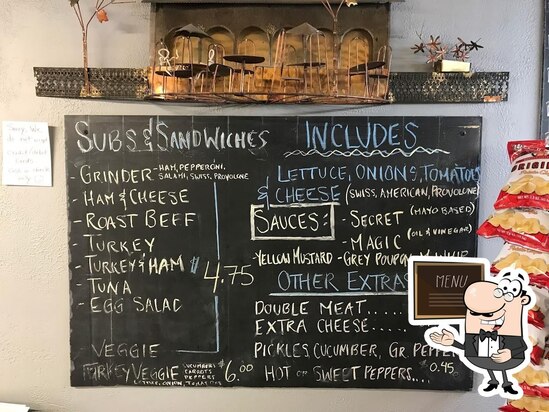 SUBS & SANDWICHES
- GRINDER - HAM, PEPPERONI,
SALAMI, SWISS, PROVOLONE
- HAM & CHEESE
- ROAST BEEF
- TURKEY
- TURKEY & HAM $4.75
- TUNA
- EGG SALAD
VEGGIE
TURKEY VEGGIE CUCUMBERS
CARROTS
PEPPERS
LETTUCE, ONION, TOMATOES
$6.00
INCLUDES
LETTUCE, ONIONS, TOMATOES
& CHEESE (SWISS, AMERICAN, PROVOLONE)
SAUCES: - SECRET (MAYO BASED)
- MAGIC (OIL & VINEGAR)
- YELLOW MUSTARD - GREY POUPON
OTHER EXTRAS
DOUBLE MEAT.....
EXTRA CHEESE....
PICKLES, CUCUMBER, GR. PEPPER
HOT OR SWEET PEPPERS... $0.45
MENU
Sorry, We
do not accept